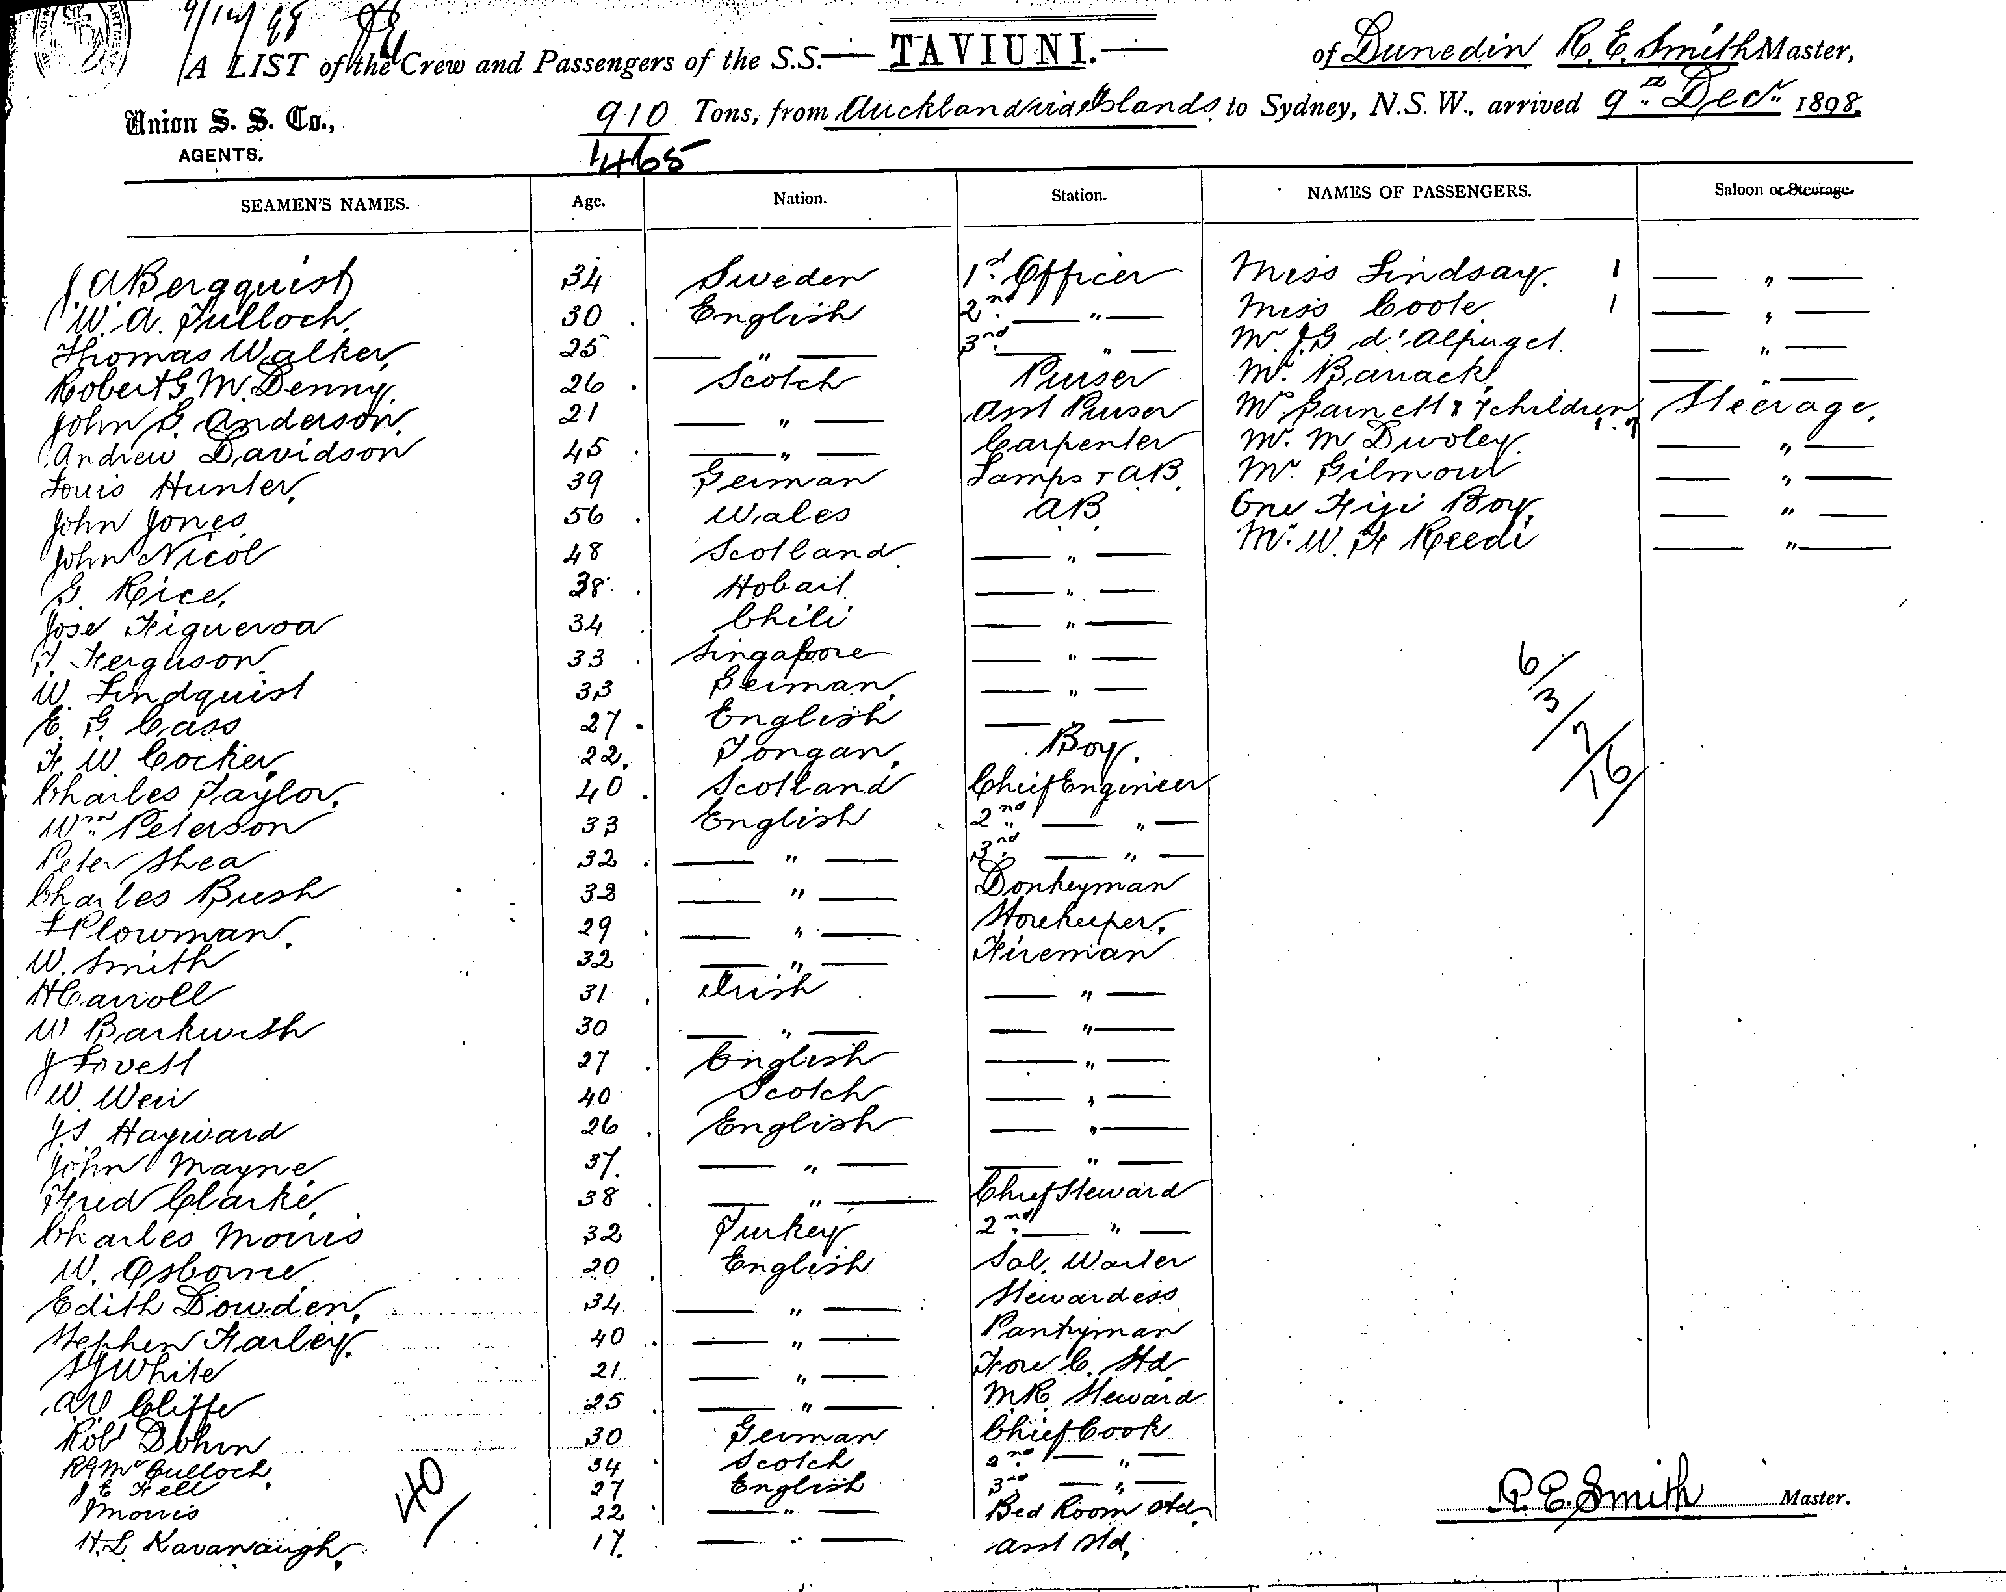 9/12/98
A LIST of the Crew and Passengers of the S.S. — TAVIUNI. — of Dunedin R. E. Smith Master,
Union S. S. Co.,
AGENTS.
910 Tons, from Auckland via Islands to Sydney, N.S.W., arrived 9th Decr 1898.
1465
SEAMEN'S NAMES. Age. Nation. Station. NAMES OF PASSENGERS. Saloon or Steerage.
J. A Bergquist 34 Sweden 1st Officer Miss Lindsay. 1 — " —
W. A. Tulloch. 30 English 2nd — " — Miss Coote 1 — " —
Thomas Walker, 25 — " — 3rd — " — Mr J G d'Alpuget. — " —
Robert G. M. Denny. 26 Scotch Purser Mr. Barrack, — " —
John G. Anderson. 21 — " — Asst Purser Mrs Garnett & 7 children Steerage.
Andrew Davidson 45 — " — Carpenter Mr. M Dwoley. — " —
Louis Hunter, 39 German Lamps & A.B. Mr Gilmour — " —
John Jones 56 Wales A.B. One Fiji Boy, — " —
John Nicol 48 Scotland — " — Mr. W. F Reedi — " —
G. Rice, 38 Hobart — " —
Jose Figueroa 34 Chili — " —
T. Ferguson 33 Singapore — " —
W. Lindquist 33 German, — " —
E. G. Cass 27 English — " —
F. W. Cocker, 22, Tongan, Boy.
Charles Taylor. 40 Scotland Chief Engineer
Wm Peterson 33 English 2nd — " —
Peter Shea 32 — " — 3rd — " —
Charles Bush 38 — " — Donkeyman
F Plowman. 29 — " — Storekeeper.
W. Smith 32 — " — Fireman
H Carroll 31 Irish — " —
W Barkwith 30 — " — — " —
J Lovett 27 English — " —
W. Weir 40 Scotch — " —
J. S. Hayward 26 English — " —
John Mayne 37. — " — — " —
Fred Clarke, 38 — " — Chief Steward
Charles Morris 32 Turkey 2nd — " —
W. Osborne 20 English Sal. Waiter
Edith Dowden. 34 — " — Stewardess
Stephen Farley. 40 — " — Pantryman
S J White 21 — " — Fore C. Std
A V Cliffe 25 — " — M.R. Steward
Robt Dohrn 30 German Chief Cook
R G McCulloch. 34 Scotch 2nd — " —
J E Fell 27 English 3rd — " —
Morris 22 — " — Bed Room Std.
H. L. Kavanaugh. 17. — " — Asst Std.
6/3/7/16
40/
R. E. Smith Master.